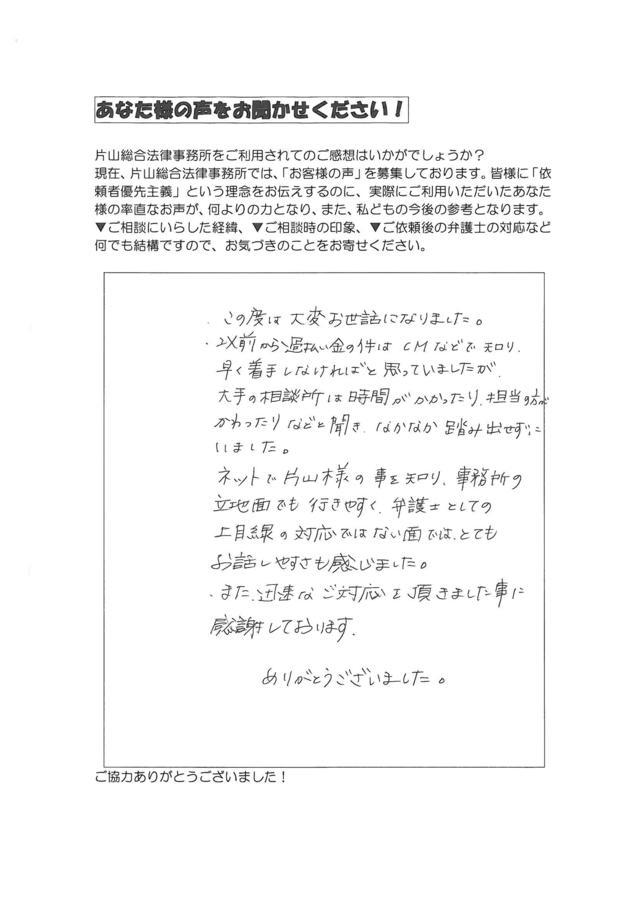 あなた様の声をお聞かせください!
片山総合法律事務所をご利用されてのご感想はいかがでしょうか?
現在、片山総合法律事務所では、「お客様の声」を募集しております。皆様に「依
頼者優先主義」という理念をお伝えするのに、実際にご利用いただいたあなた
様の率直なお声が、何よりの力となり、また、私どもの今後の参考となります。
▼ご相談にいらした経緯、▼ご相談時の印象、▼ご依頼後の弁護士の対応など
何でも結構ですので、お気づきのことをお寄せください。
・この度は大変お世話になりました。
前から過払い金の件はCMなどで知り、
早く着手しなければと思っていましたが、
大手の相談所は時間がかかったり、担当の方が
かわったりなどと聞き、なかなか踏み出せずに
いました。
ネットで片山様の事を知り、事務所の
立地面でも行きやすく、弁護士としての
上目線の対応ではない面では、とても
お話しやすさも感じました。
・また、迅速なご対応を頂きました事に
感謝しております。
ありがとうございました。
ご協力ありがとうございました!